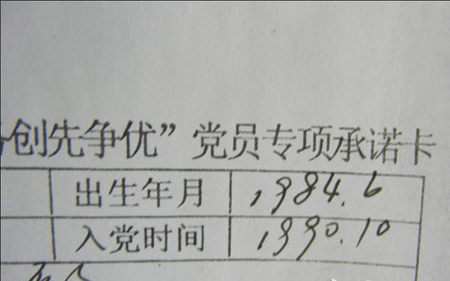 创先争优”党员专项承诺卡
出生年月 1984.6
入党时间 1990.10